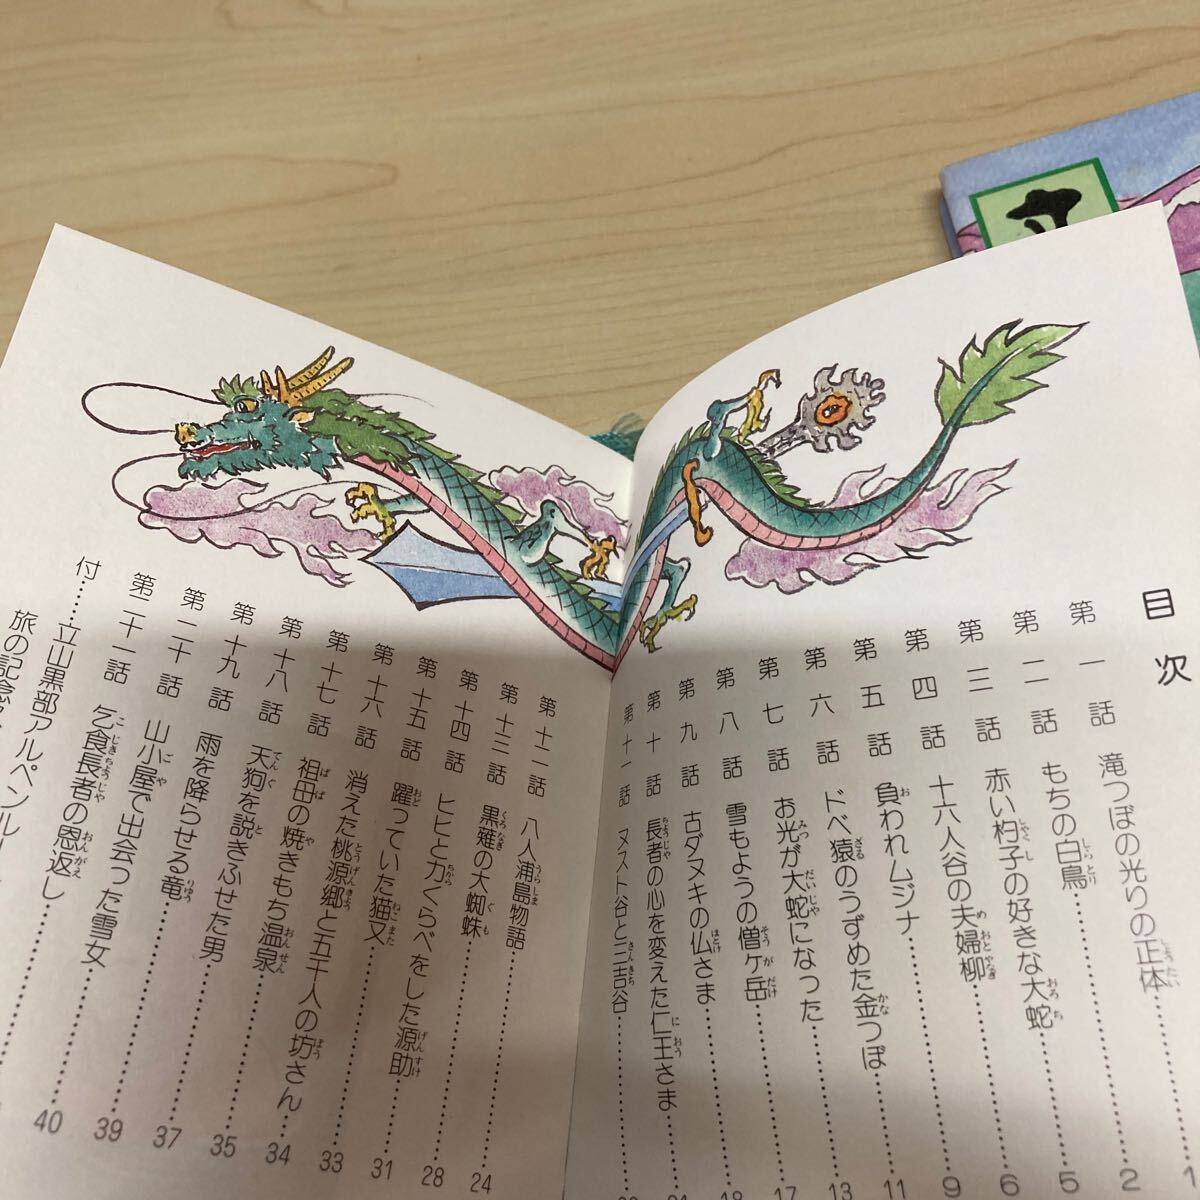 目次
第一話 滝つぼの光りの正体……1
第二話 もちの白鳥……2
第三話 赤い杓子の好きな大蛇……5
第四話 十六人谷の夫婦柳……6
第五話 負われムジナ……9
第六話 ドベ猿のうずめた金つぼ……11
第七話 お光が大蛇になった……13
第八話 雪もようの僧ヶ岳……17
第九話 古ダヌキの仏さま……18
第十話 長者の心を変えた仁王さま……
第十一話 ヌスト谷と三吉谷……
第十二話 八人浦島物語……24
第十三話 黒薙の大蜘蛛……28
第十四話 ヒヒと力くらべをした源助……31
第十五話 躍っていた猫又……33
第十六話 消えた桃源郷と五千人の坊さん……34
第十七話 祖母の焼きもち温泉……35
第十八話 天狗を説きふせた男……37
第十九話 雨を降らせる竜……39
第二十話 山小屋で出会った雪女……40
第二十一話 乞食長者の恩返し……
付……立山黒部アルペンルート
旅の記念